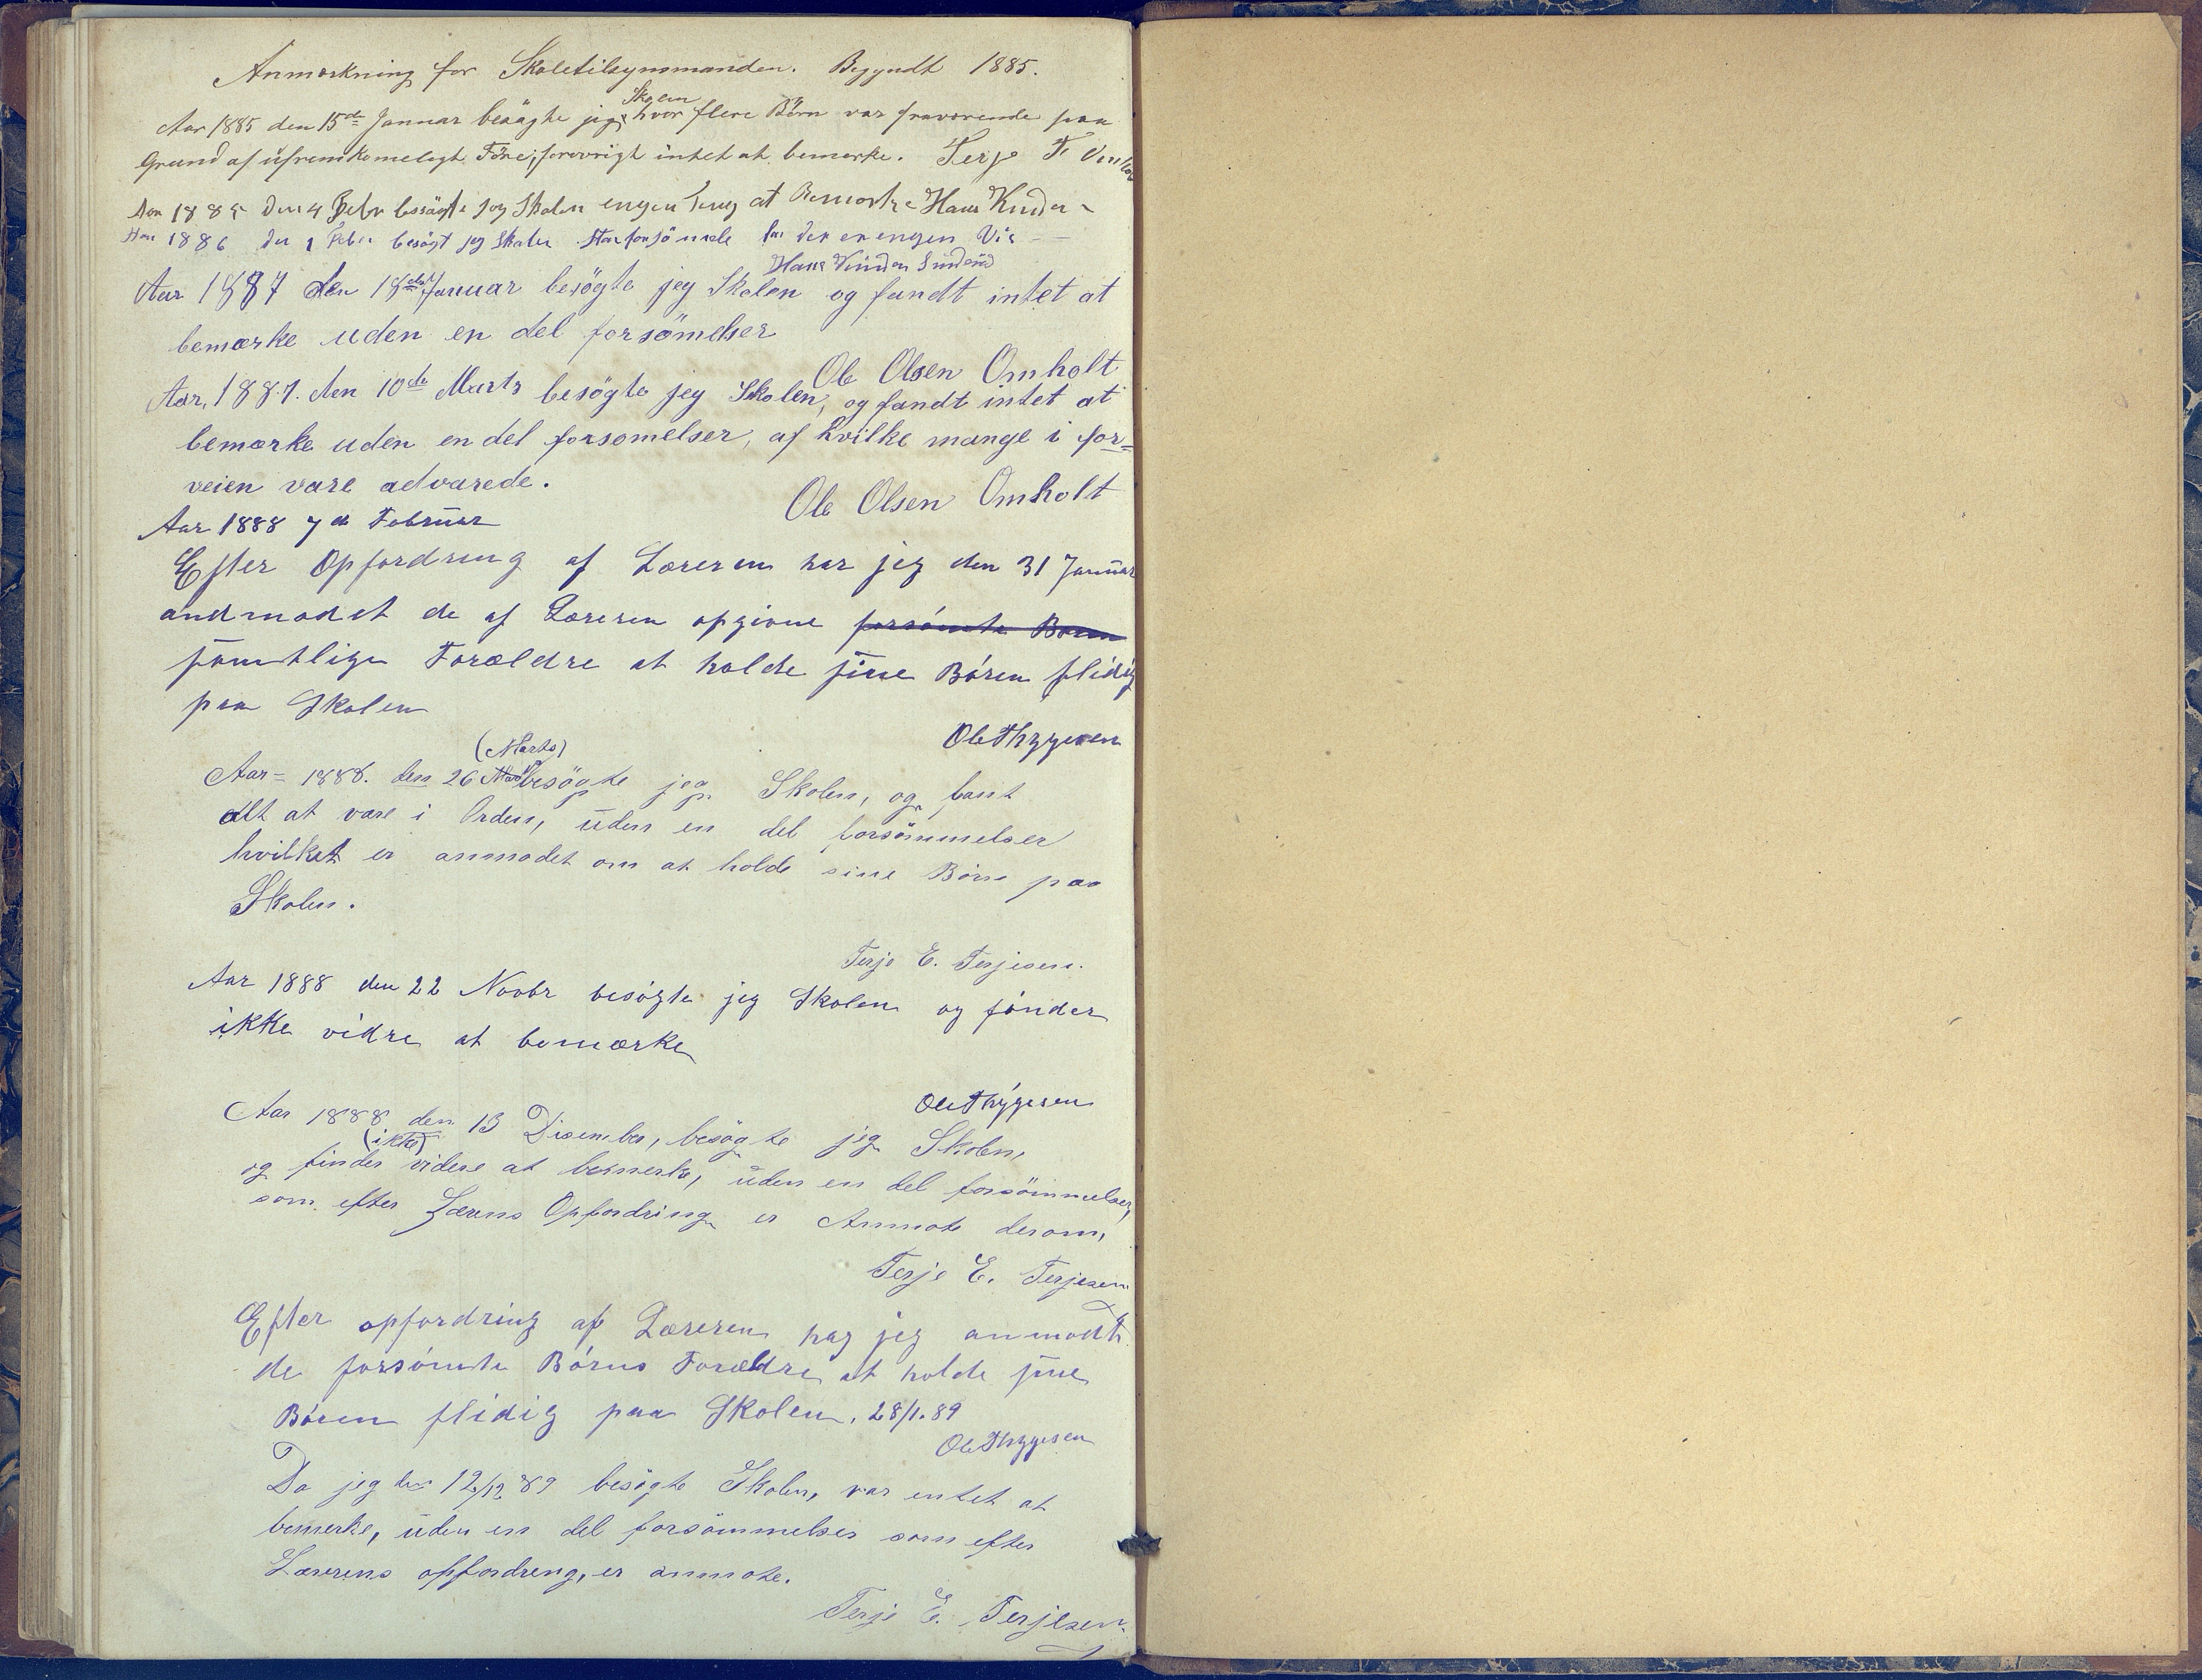 Anmærkning for Skoletilsynsmanden. Begyndt 1885.
Skolen
Aar 1885 den 15de Januar besøgte jeg hvor flere Børn var fraværende paa
Grund af ufremkomeligt Føre, forøvrigt intet at bemærke. Terje T.
Aar 1885 den 4 Febr besøgte jeg Skolen engen ting at Bemærke Hans Knuden
Aar 1886 den 1 Feber besøgt jeg Skolen Stor forsömmele der er engen Vis
Hans Knuden
Aar 1887 den 18de Januar besögte jeg Skolen og fandt intet at
bemærke uden en del forsömelser
Ole Olsen Omholt
Aar, 1887. den 10de Marts besögte jeg Skolen, og fandt intet at
bemærke uden en del forsomelser, af hvilke mange i for=
veien vare advarede.
Ole Olsen Omholt
Aar 1888 7 de Februar
Efter Opfordring af Læreren har jeg den 31 Januar
andmodet de af Læreren opgivne forsömte Børen
samtlige Forældre at holde sine Bören flidig
paa Skolen
Ole Thygesen
(Marts)
Aar= 1888. den 26 Mar besögte jeg Skolen, og fant
alt at være i Orden, uden en del forsömmelser
hvilket er anmodet om at holde sine Börn paa
Skolen.
Terje E. Terjesen.
Aar 1888 den 22 Novbr besögte jeg Skolen og finder
ikke vidre at bemærke
Ole Thygesen
Aar 1888 den 13 Disember, besögte jeg Skolen,
(ikke)
og finder videre at bemerke, uden en del forsömmelser,
som efter Lærens Opfordring er Anmote derom,
Terje E. Terjesen
Efter opfordring af Læreren har jeg anmodt
de forsömte Börns Forældre at holde sine
Bören flidig paa Skolen. 28/1.89
Ole Thygesen
Da jeg den 12/12 89 besögte Skolen, var entet at
bemerke, uden en del forsömmelser som efter
Lærerens opfordreng, er anmote.
Terje E. Terjesen.